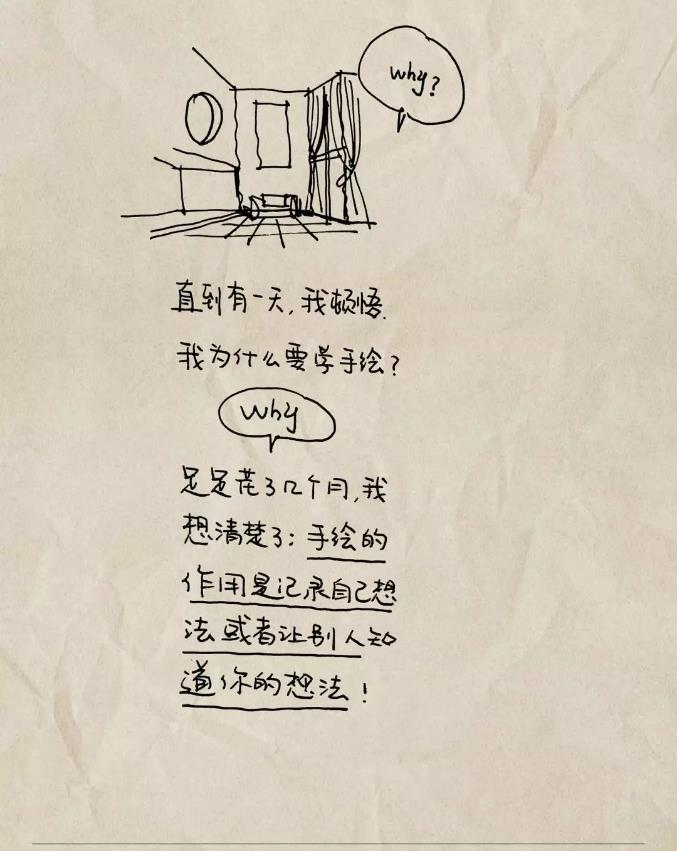 why?
直到有一天,我顿悟.
我为什么要学手绘?
why
足足花了几个月,我
想清楚了:手绘的
作用是记录自己想
法或者让别人知
道你的想法!